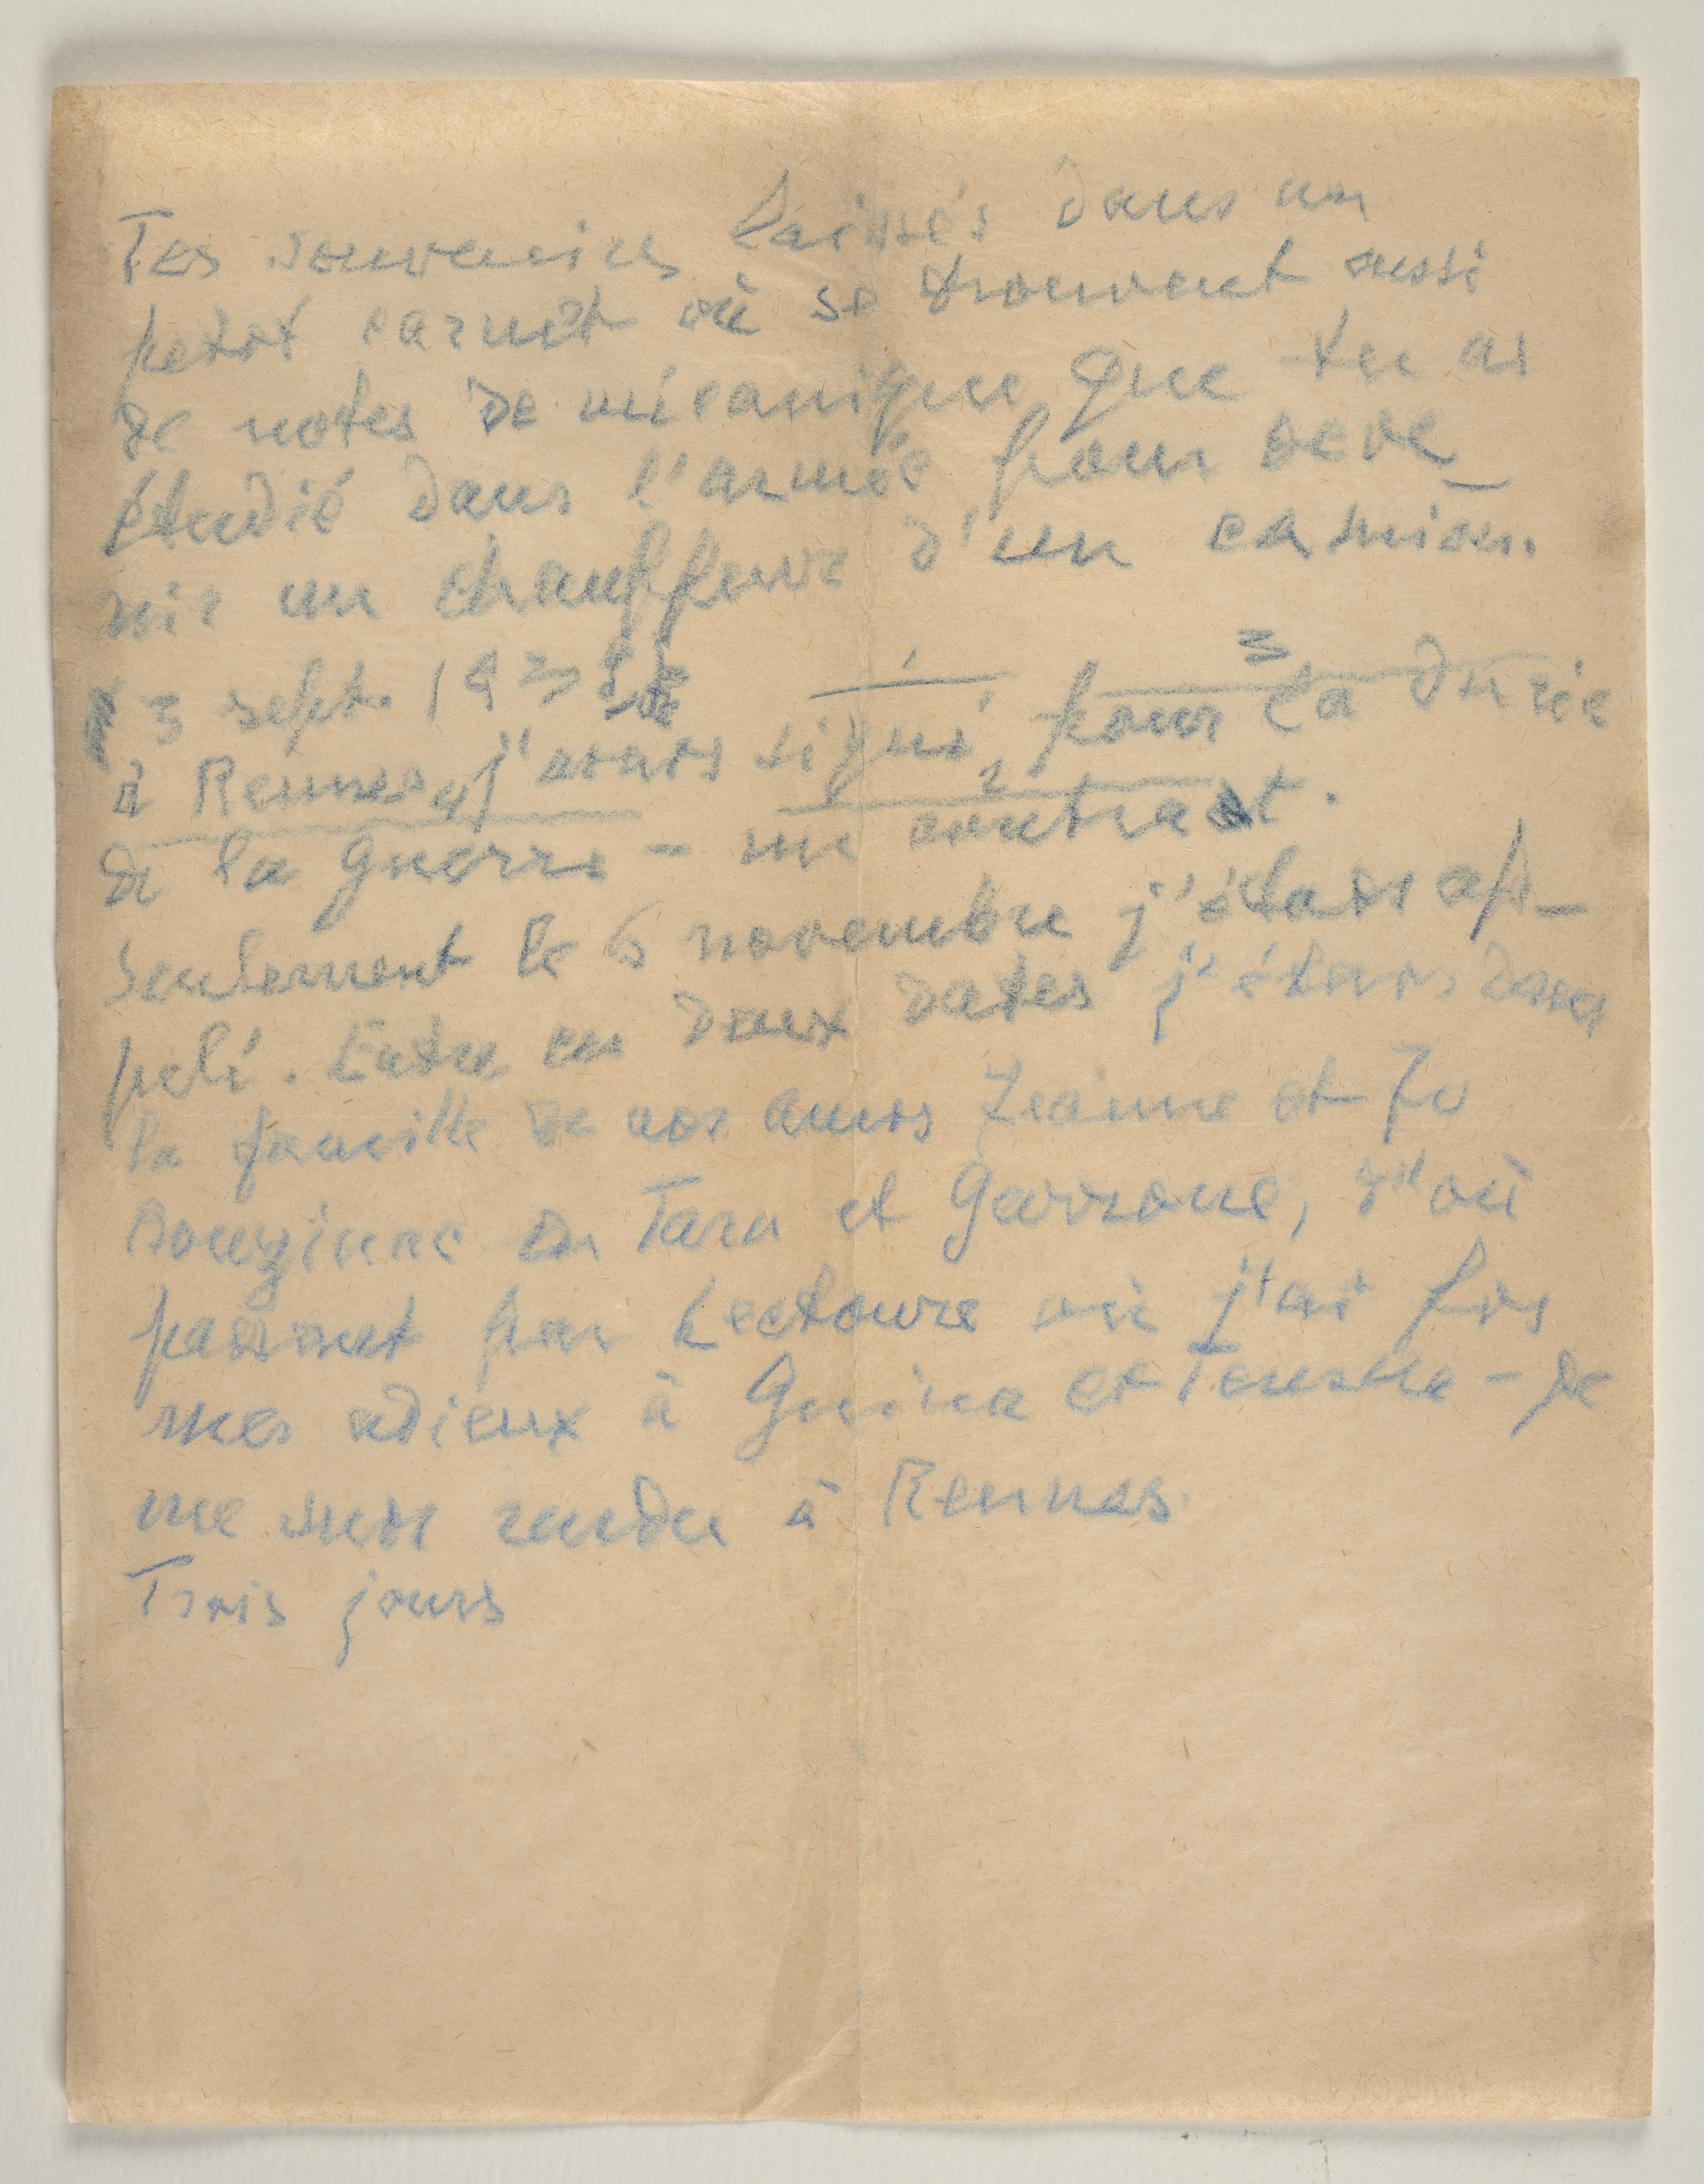 Tes souvenirs laissés dans un
petit carnet où se trouvent aussi
de notes de mécanique que tu as
étudié dans l'armée pour deve_
nir un chauffeur d'un camion.
3 sept. 193 1 3
à Rennes 4 j'avais signé, pour la durée
de la Guerre – un 2 contract.
Seulement le 6 novembre j'étais ap_
pelé. Entre ces deux dates j'étais dans
la famille de nos amis Jeanne et Jo
en Tarn et Garrone, d'où
passant par Lectoure où j'ai fis
mes adieux à Guina et – Je
me suis rendu à Rennes.
Trois jours